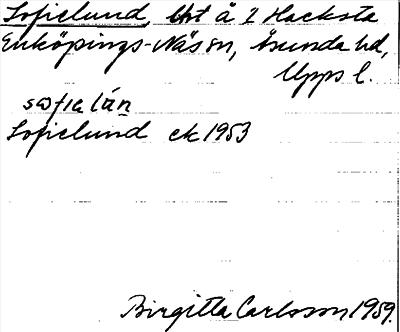 Sofielund, Ust å 2 Hacksta
Enköpings-Näs sn, Åsunda hd,
Upps l.
sofia lán
Sofielund ek 1953
Birgitta Carlsson 1959.